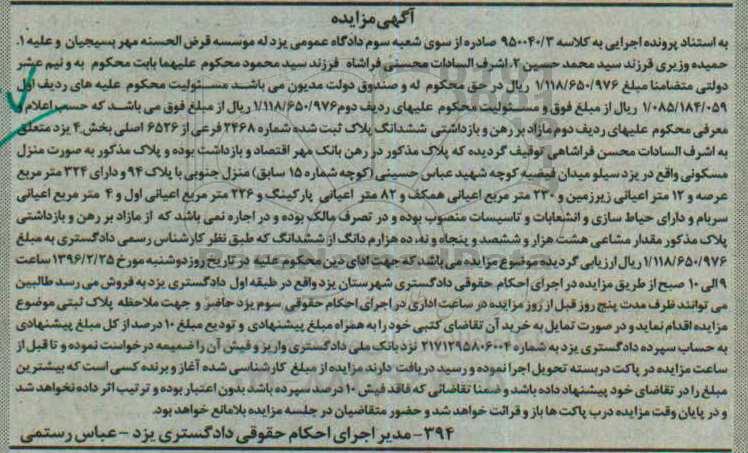 آگهی مزایده
به استناد پرونده اجرایی به کلاسه ۹۵۰۰۴۰/۳ صادره از سوی شعبه سوم دادگاه عمومی یزد له موسسه قرض الحسنه مهر بسیجیان و علیه ۱.
حمیده وزیری فرزند سید محمد حسین ۲. اشرف السادات محسنی فراشاه فرزند سید محمود محکوم علیهما بابت محکوم به و نیم عشر
دولتی متضامنا مبلغ ۱/۱۱۸/۶۵۰/۹۷۶ ریال در حق محکوم له و صندوق دولت مدیون می باشد مسئولیت محکوم علیه های ردیف اول
۱/۰۸۵/۱۸۴/۰۵۹ ریال از مبلغ فوق و مسئولیت محکوم علیهای ردیف دوم ۱/۱۱۸/۶۵۰/۹۷۶ ریال از مبلغ فوق می باشد که حسب اعلام و
معرفی محکوم علیهای ردیف دوم مازاد بر رهن و بازداشتی ششدانگ پلاک ثبت شده شماره ۲۴۶۸ فرعی از ۶۵۲۶ اصلی بخش ۴ یزد متعلق
به اشرف السادات محسن فراشاهی توقیف گردیده که پلاک مذکور در رهن بانک مهر اقتصاد و بازداشت بوده و پلاک مذکور به صورت منزل
مسکونی واقع در یزد سیلو میدان فیضیه کوچه شهید عباس حسینی (کوچه شماره ۱۵ سابق) منزل جنوبی با پلاک ۹۴ و دارای ۳۲۴ متر مربع
عرصه و ۱۲ متر اعیانی زیرزمین و ۲۳۰ متر مربع اعیانی همکف و ۸۲ متر اعیانی پارکینگ و ۲۲۶ متر مربع اعیانی اول و ۴ متر مربع اعیانی
سربام و دارای حیاط سازی و انشعابات و تاسیسات منصوب بوده و در تصرف مالک بوده و در اجاره نمی باشد که از مازاد بر رهن و بازداشتی
پلاک مذکور مقدار مشاعی هشت هزار و ششصد و پنجاه و نه، ده هزارم دانگ از ششدانگ که طبق نظر کارشناس رسمی دادگستری به مبلغ
۱/۱۱۸/۶۵۰/۹۷۶ ریال ارزیابی گردیده موضوع مزایده می باشد که جهت ادای دین محکوم علیه در تاریخ روز دوشنبه مورخ ۱۳۹۶/۲/۲۵ ساعت
۹ الی ۱۰ صبح از طریق مزایده در اجرای احکام حقوقی دادگستری شهرستان یزد واقع در طبقه اول دادگستری یزد به فروش می رسد طالبین
می توانند ظرف مدت پنج روز قبل از روز مزایده در ساعت اداری در اجرای احکام حقوقی سوم یزد حاضر و جهت ملاحظه پلاک ثبتی موضوع
مزایده اقدام نماید و در صورت تمایل به خرید آن تقاضای کتبی خود را به همراه مبلغ پیشنهادی و تودیع مبلغ ۱۰ درصد از کل مبلغ پیشنهادی
به حساب سپرده دادگستری یزد به شماره ۲۱۷۱۲۹۵۸۰۶۰۰۴ نزد بانک ملی دادگستری واریز و فیش آن را ضمیمه درخواست نموده و تا قبل از
ساعت مزایده در پاکت دربسته تحویل اجرا نموده و رسید دریافت دارند مزایده از مبلغ کارشناسی شده آغاز و برنده کسی است که بیشترین
مبلغ را در تقاضای خود پیشنهاد داده باشد و ضمنا تقاضائی که فاقد فیش ۱۰ درصد سپرده باشد بدون اعتبار بوده و ترتیب اثر داده نخواهد شد
و در پایان وقت مزایده درب پاکت ها باز و قرائت خواهد شد و حضور متقاضیان در جلسه مزایده بلامانع خواهد بود.
۳۹۴- مدیر اجرای احکام حقوقی دادگستری یزد - عباس رستمی